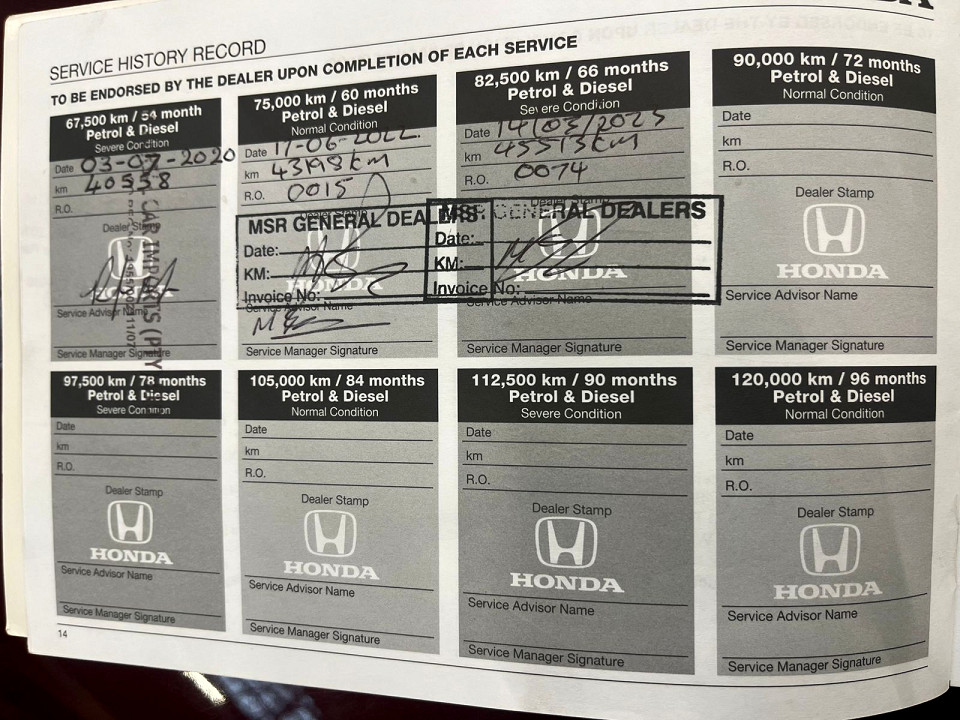 SERVICE HISTORY RECORD
TO BE ENDORSED BY THE DEALER UPON COMPLETION OF EACH SERVICE
67,500 km / 54 month
Petrol & Diesel
Severe Condition
Date 03-07-2020
km 40558
R.O.
Dealer Stamp
CAR IMPORTS (PTY
HONDA
Service Advisor Name
Service Manager Signature
75,000 km / 60 months
Petrol & Diesel
Normal Condition
Date 17-06-2022
km 43198km
R.O. 0015
Dealer Stamp
MSR GENERAL DEALERS
Date:
KM:
Invoice No:
Service Advisor Name
Service Manager Signature
82,500 km / 66 months
Petrol & Diesel
Severe Condition
Date 14/03/2023
km 45513km
R.O. 0074
Dealer Stamp
MSR GENERAL DEALERS
Date:
KM:
HONDA
Invoice No:
Service Advisor Name
Service Manager Signature
90,000 km / 72 months
Petrol & Diesel
Normal Condition
Date
km
R.O.
Dealer Stamp
HONDA
Service Advisor Name
Service Manager Signature
97,500 km / 78 months
Petrol & Diesel
Severe Condition
Date
km
R.O.
Dealer Stamp
HONDA
Service Advisor Name
Service Manager Signature
105,000 km / 84 months
Petrol & Diesel
Normal Condition
Date
km
R.O.
Dealer Stamp
HONDA
Service Advisor Name
Service Manager Signature
112,500 km / 90 months
Petrol & Diesel
Severe Condition
Date
km
R.O.
Dealer Stamp
HONDA
Service Advisor Name
Service Manager Signature
120,000 km / 96 months
Petrol & Diesel
Normal Condition
Date
km
R.O.
Dealer Stamp
HONDA
Service Advisor Name
Service Manager Signature
14